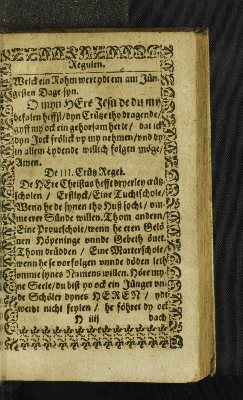 Regulen.
Welck ein Rohm wert ydt em am Jün-
gesten Dage syn.
O myn HEre Jesu de du my
befalen heffst / dyn Crütze tho dragende /
gyff my ock ein gehorsam herte / dat ick
dyn Jock frölick vp my nehmen / vnd dy
in allem Lydende willich folgen möge /
Amen.
De III. Crütz Regel.
De HEre Christus hefft dryerley crütz-
scholen / Erstlyck / Eine Tuchtschole /
Wenn he de synen tho Huß söcht / vm
merer Sünde willen. Thom andern /
Eine Proueschole / wenn he eren Gelö-
uen Höpeninge vnnde Gebeth öuet.
Thom drüdden / Eine Marterschole /
wenn he se vorfolgen vnnde döden leth
vmme synes Namens willen. Höre my-
ne Seele / du bist yo ock ein Jünger vn-
de Schöler dynes HEREN / ydt
werdt nicht feylen / he föhret dy ock
H iiij dach